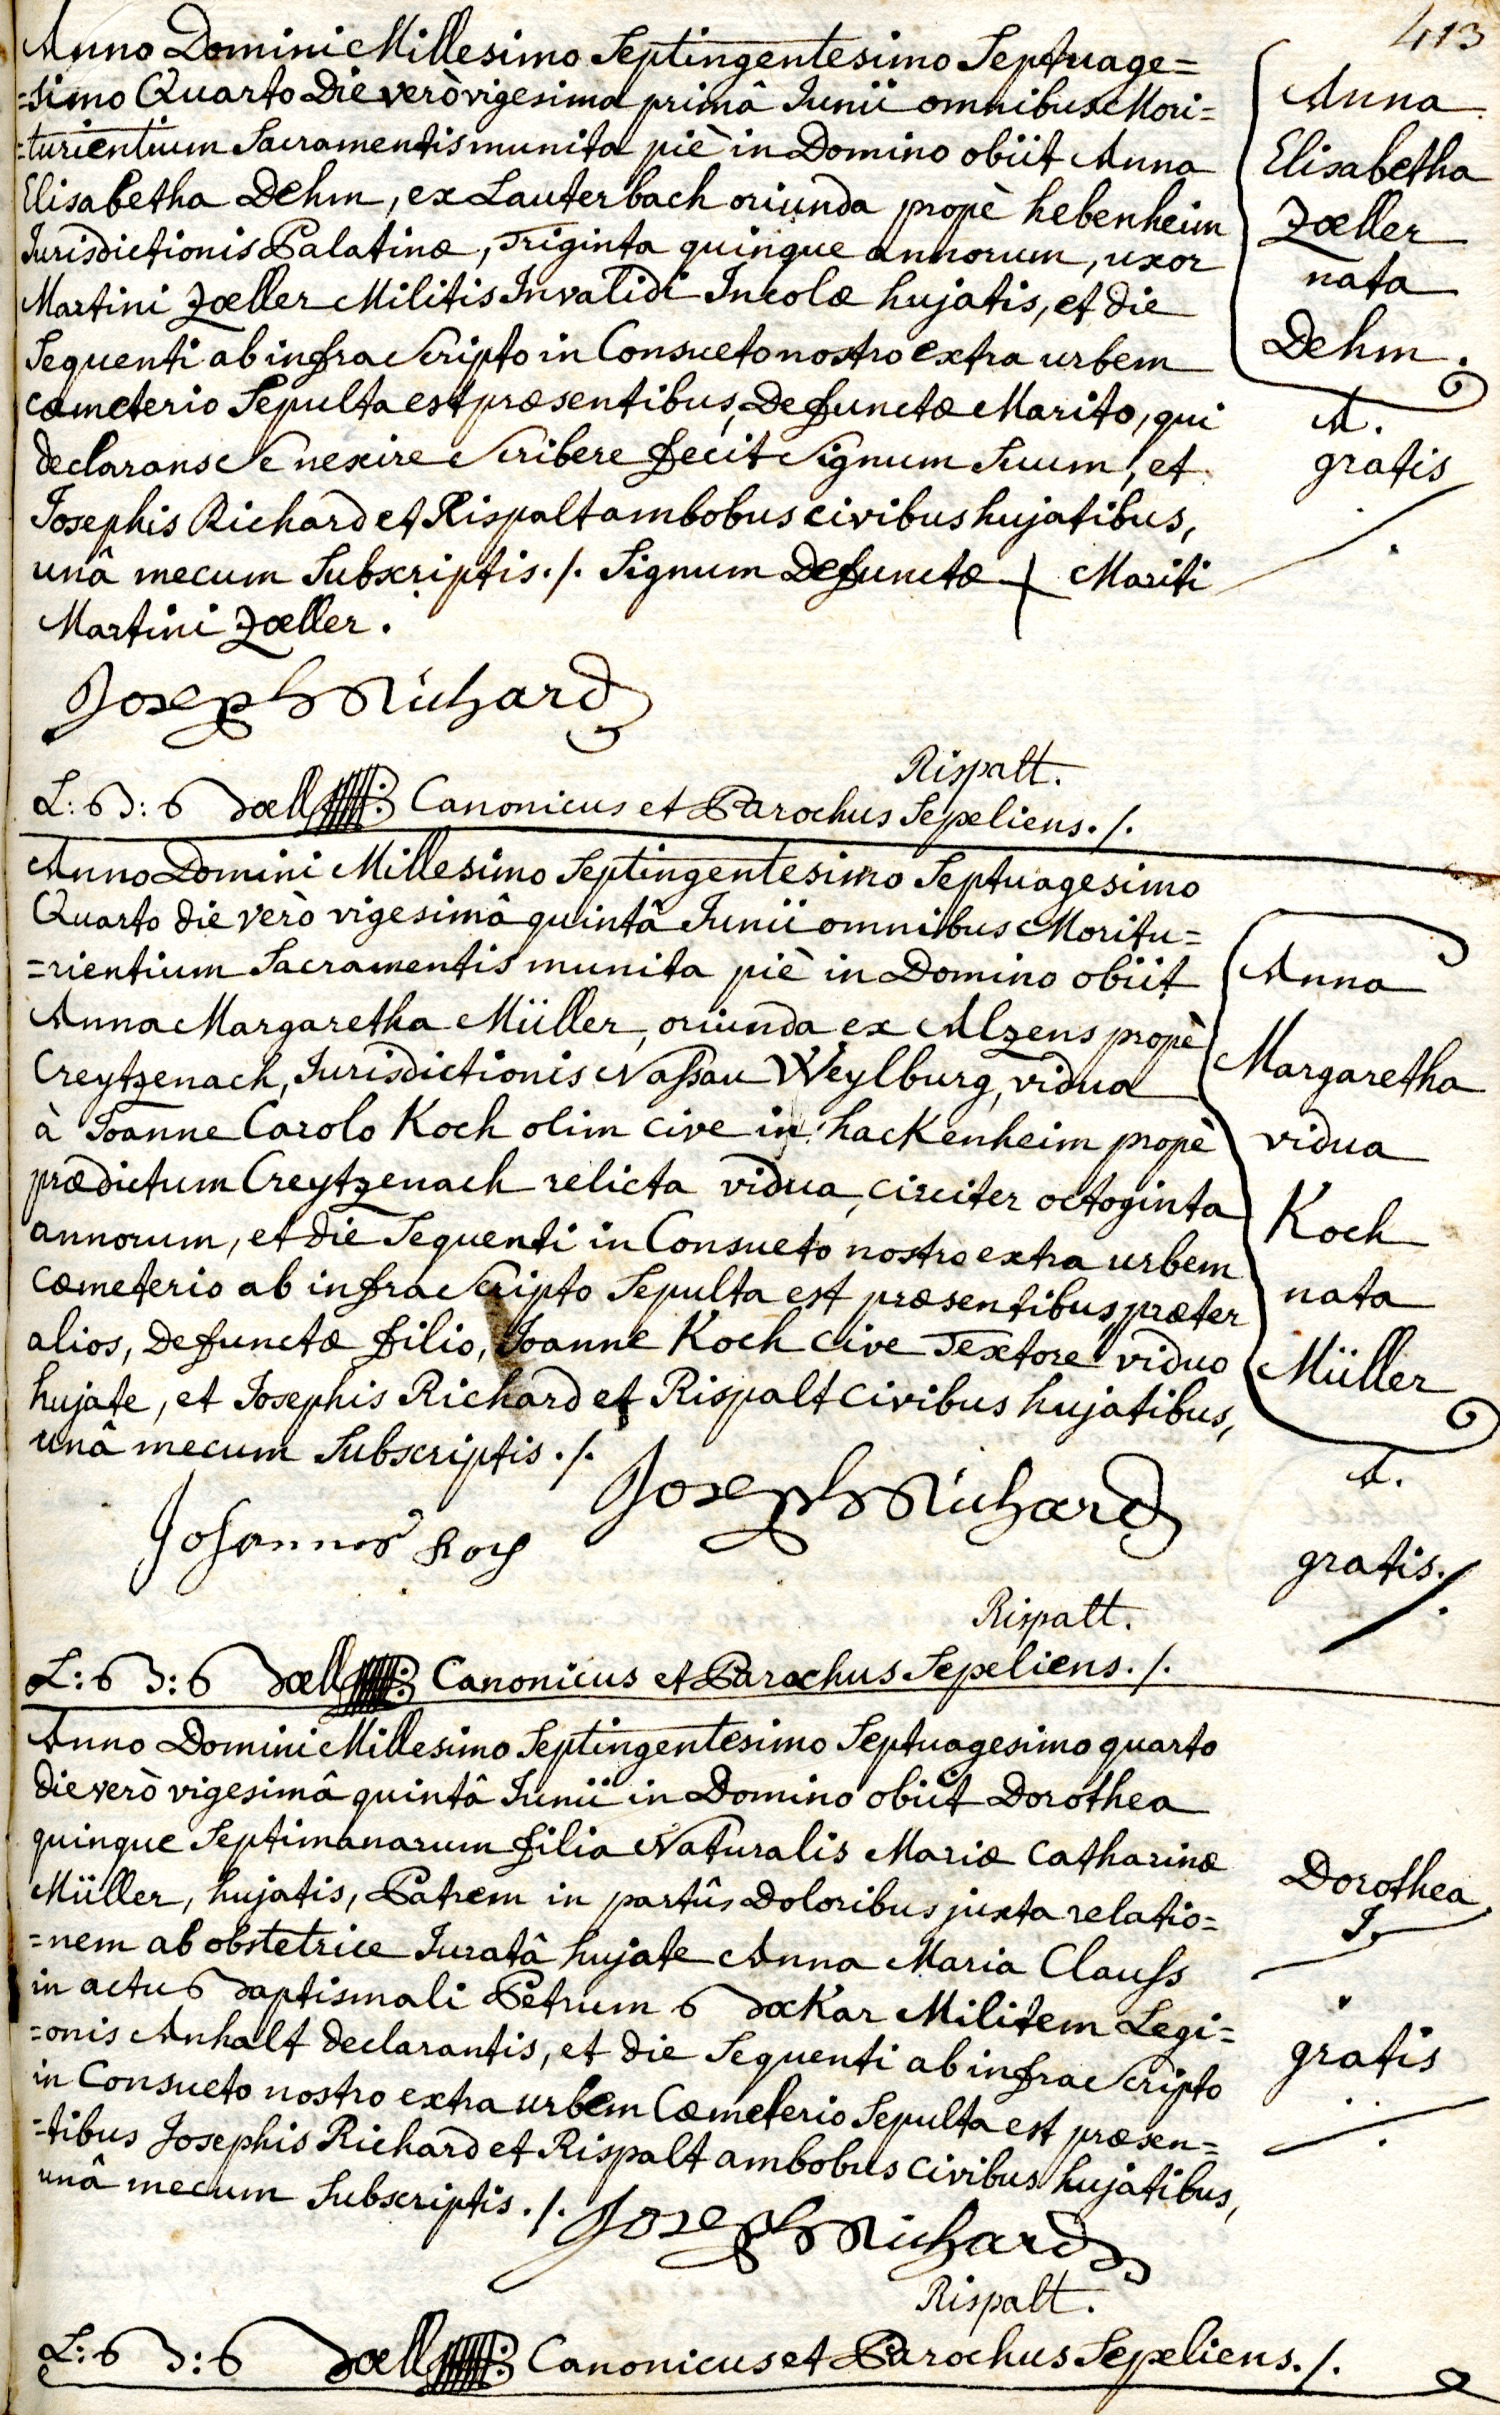 413
Anno Domini Millesimo Septingentesimo Septuage=
=simo Quarto Die verò vigesima primâ Junii omnibus Mori=
=turientium Sacramentis munita piè in Domino obiit Anna
Elisabetha Dehm, ex Lauterbach oriunda propè hebenheim
Jurisdictionis Palatinæ, Triginta quinque annorum, uxor
Martini Zœller Militis Invalidi Incolæ hujatis, et die
Sequenti ab infra Scripto in Consueto nostro extra urbem
cæmeterio Sepulta est præsentibus, Defunctæ Marito, qui
declarans Se nescire Scribere fecit Signum Suum, et
Josephis Richard et Rispalt ambobus civibus hujatibus,
unâ mecum Subscriptis ./. Signum Defunctæ + Mariti
Martini Zœller.
Anna
Elisabetha
Zœller
nata
Dehm.
A.
gratis
Joseph Richard
Rispalt.
L: B: Bœll Canonicus et Parochus Sepeliens ./.
Anno Domini Millesimo Septingentesimo Septuagesimo
Quarto die verò vigesimâ quintâ Junii omnibus Moritu=
=rientium Sacramentis munita piè in Domino obiit
Anna Margaretha Müller, oriunda ex Alzens propè
Creytzenach, Jurisdictionis Nassau Weylburg, vidua
à Joanne Carolo Koch olim cive in hackenheim propè
prædictum Creytzenach relicta vidua, circiter octoginta
annorum, et die Sequenti in Consueto nostro extra urbem
Cœmeterio ab infra Scripto Sepulta est præsentibus, præter
alios, Defunctæ filio, Joanne Koch Cive Textore viduo
hujate, et Josephis Richard et Rispalt civibus hujatibus,
unâ mecum Subscriptis ./.
Anna
Margaretha
vidua
Koch
nata
Müller
A.
gratis.
Joseph Richard
Johannes Koch
Rispalt.
L: B: Bœll Canonicus et Parochus Sepeliens ./.
Anno Domini Millesimo Septingentesimo Septuagesimo quarto
die verò vigesimâ quintâ Junii in Domino obiit Dorothea
quinque Septimanarum filia Naturalis Mariæ Catharinæ
Müller, hujatis, Patrem in partûs Doloribus juxta relatio=
=nem ab obstetrice Juratâ hujate Anna Maria Clauss
in actu Baptismali Petrum Bœkar Militem Legi=
=onis Anhalt declarantis, et die Sequenti ab infra Scripto
in Consueto nostro extra urbem Cœmeterio Sepulta est præsen=
=tibus Josephis Richard et Rispalt ambobus civibus hujatibus,
unâ mecum Subscriptis ./.
Dorothea
J.
gratis
Joseph Richard
Rispalt.
L: B: Bœll Canonicus et Parochus Sepeliens ./.